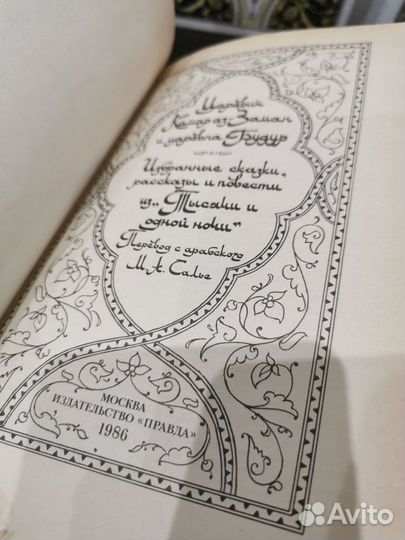 Царевич
Камар аз-Заман
и царевна Будур
Избранные сказки,
рассказы и повести
из „Тысячи и
одной ночи"
Перевод с арабского
М. А. Салье
МОСКВА
ИЗДАТЕЛЬСТВО «ПРАВДА»
1986
Avito